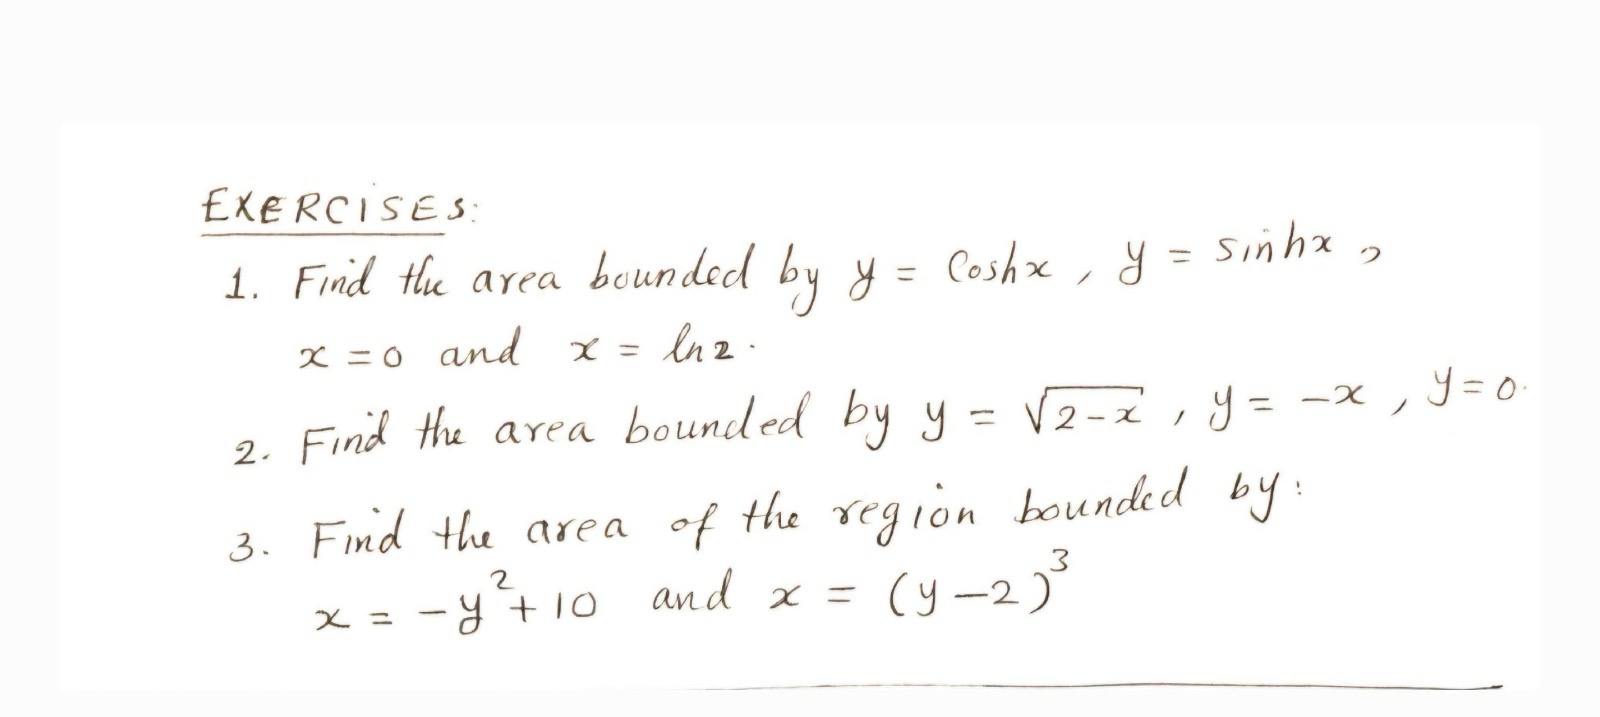 EXERCISES:
1. Find the area bounded by y = Coshx , y = sinhx ,
x = 0 and x = ln 2 .
2. Find the area bounded by y = √(2-x) , y = -x , y = 0.
3. Find the area of the region bounded by:
x = -y² + 10 and x = (y-2)³